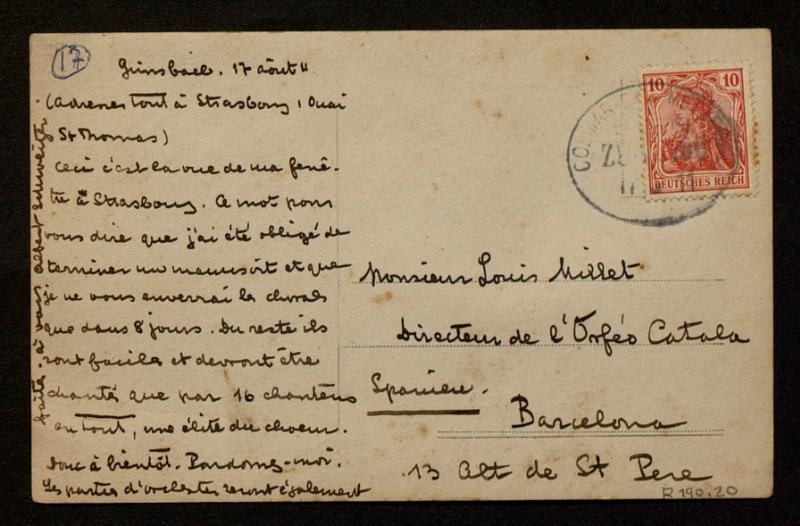 17
Günsbach. 17 août 11
(adresse tout à Strasbourg 1 Quai
St Thomas)
Ceci c'est la vue de ma fenê-
tre à Strasbourg. Ce mot pour
vous dire que j'ai été obligé de
terminer un manuscrit et que
je ne vous enverrai les chorals
que dans 8 jours. Du reste ils
sont faciles et devront être
chantés que par 16 chanteurs
en tout, une élite du choeur.
Donc à bientôt. Pardonnez-moi.
Les parties d'orchestre seront également
faites. à vous Albert Schweitzer
10 10
DEUTSCHES REICH
COLMAR
Monsieur Louis Millet
Directeur de l'Orféo Catala
Spanien.
Barcelona
13 Alt de St Pere
R 190.20